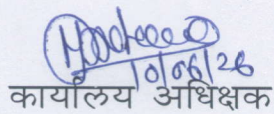 10/06/26
कार्यालय अधिक्षक